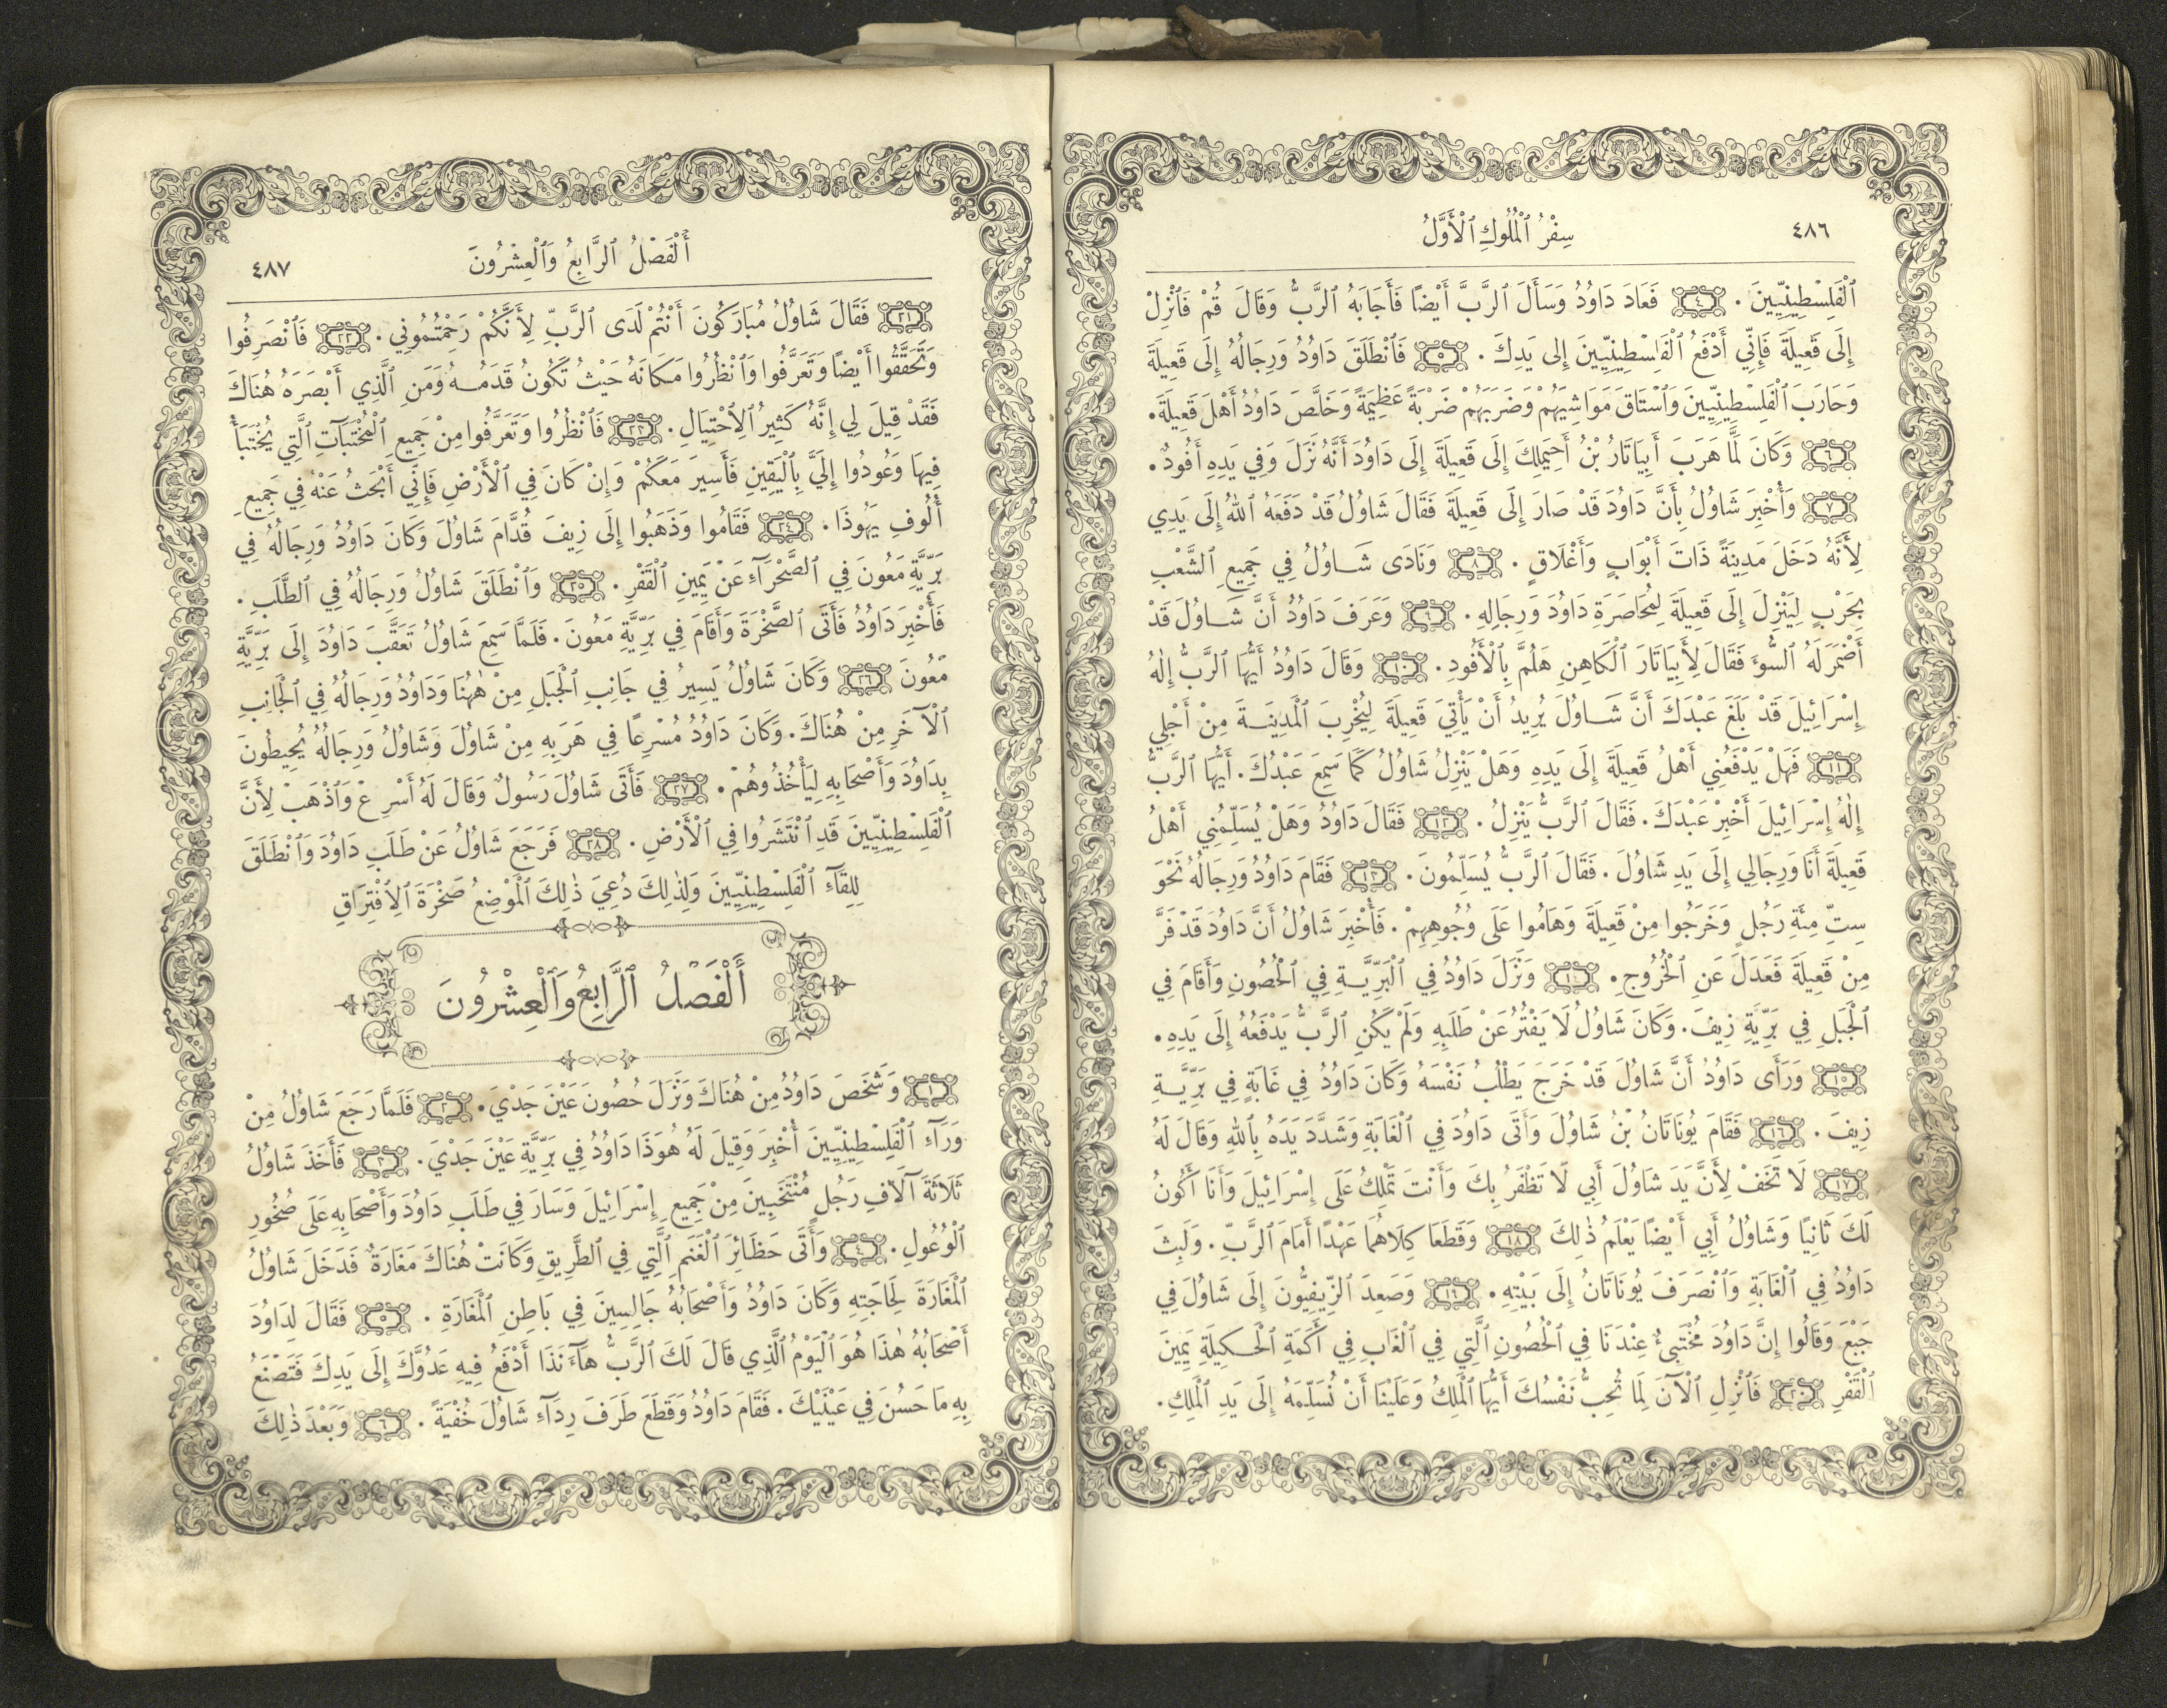 ٤٨٦
سِفْرُ ٱلْمُلُوكِ ٱلْأَوَّلُ
ٱلْفَلِسْطِينِيِّينَ. ٤ فَعَادَ دَاوُدُ وَسَأَلَ ٱلرَّبَّ أَيْضًا فَأَجَابَهُ ٱلرَّبُّ وَقَالَ قُمْ فَٱنْزِلْ
إِلَى قَعِيلَةَ فَإِنِّي أَدْفَعُ ٱلْفَلِسْطِينِيِّينَ إِلى يَدِكَ. ٥ فَٱنْطَلَقَ دَاوُدُ وَرِجَالُهُ إِلَى قَعِيلَةَ
وَحَارَبَ ٱلْفَلِسْطِينِيِّينَ وَٱسْتَاقَ مَوَاشِيَهُمْ وَضَرَبَهُمْ ضَرْبَةً عَظِيمَةً وَخَلَّصَ دَاوُدُ أَهْلَ قَعِيلَةَ.
٦ وَكَانَ لَمَّا هَرَبَ أَبِيَاتَارُ بْنُ أَحِيمَلِكَ إِلَى قَعِيلَةَ إِلَى دَاوُدَ أَنَّهُ نَزَلَ وَفِي يَدِهِ أَفُودٌ.
٧ وَأُخْبِرَ شَاوُلُ بِأَنَّ دَاوُدَ قَدْ صَارَ إِلَى قَعِيلَةَ فَقَالَ شَاوُلُ قَدْ دَفَعَهُ ٱللهُ إِلَى يَدِي
لِأَنَّهُ دَخَلَ مَدِينَةً ذَاتَ أَبْوَابٍ وَأَغْلَاقٍ. ٨ وَنَادَى شَاوُلُ فِي جَمِيعِ ٱلشَّعْبِ
بِحَرْبٍ لِيَنْزِلَ إِلَى قَعِيلَةَ لِمُحَاصَرَةِ دَاوُدَ وَرِجَالِهِ. ٩ وَعَرَفَ دَاوُدُ أَنَّ شَاوُلَ قَدْ
أَضْمَرَ لَهُ ٱلسُّوءَ فَقَالَ لِأَبِيَاتَارَ ٱلْكَاهِنِ هَلُمَّ بِٱلْأَفُودِ. ١٠ وَقَالَ دَاوُدُ أَيُّهَا ٱلرَّبُّ إِلٰهُ
إِسْرَائِيلَ قَدْ بَلَغَ عَبْدَكَ أَنَّ شَاوُلَ يُرِيدُ أَنْ يَأْتِيَ قَعِيلَةَ لِيُخْرِبَ ٱلْمَدِينَةَ مِنْ أَجْلِي
١١ فَهَلْ يَدْفَعُنِي أَهْلُ قَعِيلَةَ إِلَى يَدِهِ وَهَلْ يَنْزِلُ شَاوُلُ كَمَا سَمِعَ عَبْدُكَ. أَيُّهَا ٱلرَّبُّ
إِلٰهُ إِسْرَائِيلَ أَخْبِرْ عَبْدَكَ. فَقَالَ ٱلرَّبُّ يَنْزِلُ. ١٢ فَقَالَ دَاوُدُ وَهَلْ يُسَلِّمُنِي أَهْلُ
قَعِيلَةَ أَنَا وَرِجَالِي إِلَى يَدِ شَاوُلَ. فَقَالَ ٱلرَّبُّ يُسَلِّمُونَ. ١٣ فَقَامَ دَاوُدُ وَرِجَالُهُ نَحْوَ
سِتِّ مِئَةِ رَجُلٍ وَخَرَجُوا مِنْ قَعِيلَةَ وَهَامُوا عَلَى وُجُوهِهِمْ. فَأُخْبِرَ شَاوُلُ أَنَّ دَاوُدَ قَدْ فَرَّ
مِنْ قَعِيلَةَ فَعَدَلَ عَنِ ٱلْخُرُوجِ. ١٤ وَنَزَلَ دَاوُدُ فِي ٱلْبَرِّيَّةِ فِي ٱلْحُصُونِ وَأَقَامَ فِي
ٱلْجَبَلِ فِي بَرِّيَّةِ زِيفَ. وَكَانَ شَاوُلُ لَا يَفْتُرُ عَنْ طَلَبِهِ وَلَمْ يَكُنِ ٱلرَّبُّ يَدْفَعُهُ إِلَى يَدِهِ.
١٥ وَرَأَى دَاوُدُ أَنَّ شَاوُلَ قَدْ خَرَجَ يَطْلُبُ نَفْسَهُ وَكَانَ دَاوُدُ فِي غَابَةٍ فِي بَرِّيَّةِ
زِيفَ. ١٦ فَقَامَ يُونَاتَانُ بْنُ شَاوُلَ وَأَتَى دَاوُدَ فِي ٱلْغَابَةِ وَشَدَّدَ يَدَهُ بِٱللهِ وَقَالَ لَهُ
١٧ لَا تَخَفْ لِأَنَّ يَدَ شَاوُلَ أَبِي لَا تَظْفَرُ بِكَ وَأَنْتَ تَمْلِكُ عَلَى إِسْرَائِيلَ وَأَنَا أَكُونُ
لَكَ ثَانِيًا وَشَاوُلُ أَبِي أَيْضًا يَعْلَمُ ذٰلِكَ ١٨ وَقَطَعَا كِلَاهُمَا عَهْدًا أَمَامَ ٱلرَّبِّ. وَلَبِثَ
دَاوُدُ فِي ٱلْغَابَةِ وَٱنْصَرَفَ يُونَاتَانُ إِلَى بَيْتِهِ. ١٩ وَصَعِدَ ٱلزِّيفِيُّونَ إِلَى شَاوُلَ فِي
جَبْعَ وَقَالُوا إِنَّ دَاوُدَ مُخْتَبِئٌ عِنْدَنَا فِي ٱلْحُصُونِ ٱلَّتِي فِي ٱلْغَابِ فِي أَكَمَةِ ٱلْحَكِيلَةِ يَمِينَ
ٱلْقَفْرِ ٢٠ فَٱنْزِلِ ٱلْآنَ لِمَا تُحِبُّ نَفْسُكَ أَيُّهَا ٱلْمَلِكُ وَعَلَيْنَا أَنْ نُسَلِّمَهُ إِلَى يَدِ ٱلْمَلِكِ.
أَلْفَصْلُ ٱلرَّابِعُ وَٱلْعِشْرُونَ
٤٨٧
٢١ فَقَالَ شَاوُلُ مُبَارَكُونَ أَنْتُمْ لَدَى ٱلرَّبِّ لِأَنَّكُمْ رَحِمْتُمُونِي. ٢٢ فَٱنْصَرِفُوا
وَتَحَقَّقُوا أَيْضًا وَتَعَرَّفُوا وَٱنْظُرُوا مَكَانَهُ حَيْثُ تَكُونُ قَدَمُهُ وَمَنِ ٱلَّذِي أَبْصَرَهُ هُنَاكَ
فَقَدْ قِيلَ لِي إِنَّهُ كَثِيرُ ٱلِٱحْتِيَالِ. ٢٣ فَٱنْظُرُوا وَتَعَرَّفُوا مِنْ جَمِيعِ ٱلْمُخْتَبَآتِ ٱلَّتِي يُخْتَبَأُ
فِيهَا وَعُودُوا إِلَيَّ بِٱلْيَقِينِ فَأَسِيرَ مَعَكُمْ وَإِنْ كَانَ فِي ٱلْأَرْضِ فَإِنِّي أَبْحَثُ عَنْهُ فِي جَمِيعِ
أُلُوفِ يَهُوذَا. ٢٤ فَقَامُوا وَذَهَبُوا إِلَى زِيفَ قُدَّامَ شَاوُلَ وَكَانَ دَاوُدُ وَرِجَالُهُ فِي
بَرِّيَّةِ مَعُونَ فِي ٱلصَّحْرَآءِ عَنْ يَمِينِ ٱلْقَفْرِ. ٢٥ وَٱنْطَلَقَ شَاوُلُ وَرِجَالُهُ فِي ٱلطَّلَبِ.
فَأُخْبِرَ دَاوُدُ فَأَتَى ٱلصَّخْرَةَ وَأَقَامَ فِي بَرِّيَّةِ مَعُونَ. فَلَمَّا سَمِعَ شَاوُلُ تَعَقَّبَ دَاوُدَ إِلَى بَرِّيَّةِ
مَعُونَ ٢٦ وَكَانَ شَاوُلُ يَسِيرُ فِي جَانِبِ ٱلْجَبَلِ مِنْ هٰهُنَا وَدَاوُدُ وَرِجَالُهُ فِي ٱلْجَانِبِ
ٱلْآخَرِ مِنْ هُنَاكَ. وَكَانَ دَاوُدُ مُسْرِعًا فِي هَرَبِهِ مِنْ شَاوُلَ وَشَاوُلُ وَرِجَالُهُ يُحِيطُونَ
بِدَاوُدَ وَأَصْحَابِهِ لِيَأْخُذُوهُمْ. ٢٧ فَأَتَى شَاوُلَ رَسُولٌ وَقَالَ لَهُ أَسْرِعْ وَٱذْهَبْ لِأَنَّ
ٱلْفَلِسْطِينِيِّينَ قَدِ ٱنْتَشَرُوا فِي ٱلْأَرْضِ. ٢٨ فَرَجَعَ شَاوُلُ عَنْ طَلَبِ دَاوُدَ وَٱنْطَلَقَ
لِلِقَآءِ ٱلْفَلِسْطِينِيِّينَ وَلِذٰلِكَ دُعِيَ ذٰلِكَ ٱلْمَوْضِعُ صَخْرَةَ ٱلِٱفْتِرَاقِ
أَلْفَصْلُ ٱلرَّابِعُ وَٱلْعِشْرُونَ
١ وَشَخَصَ دَاوُدُ مِنْ هُنَاكَ وَنَزَلَ حُصُونَ عَيْنَ جَدْيَ. ٢ فَلَمَّا رَجَعَ شَاوُلُ مِنْ
وَرَآءِ ٱلْفَلِسْطِينِيِّينَ أُخْبِرَ وَقِيلَ لَهُ هُوَذَا دَاوُدُ فِي بَرِّيَّةِ عَيْنَ جَدْيَ. ٣ فَأَخَذَ شَاوُلُ
ثَلَاثَةَ آلَافِ رَجُلٍ مُنْتَخَبِينَ مِنْ جَمِيعِ إِسْرَائِيلَ وَسَارَ فِي طَلَبِ دَاوُدَ وَأَصْحَابِهِ عَلَى صُخُورِ
ٱلْوُعُولِ. ٤ وَأَتَى حَظَائِرَ ٱلْغَنَمِ ٱلَّتِي فِي ٱلطَّرِيقِ وَكَانَتْ هُنَاكَ مَغَارَةٌ فَدَخَلَ شَاوُلُ
ٱلْمَغَارَةَ لِحَاجَتِهِ وَكَانَ دَاوُدُ وَأَصْحَابُهُ جَالِسِينَ فِي بَاطِنِ ٱلْمَغَارَةِ. ٥ فَقَالَ لِدَاوُدَ
أَصْحَابُهُ هٰذَا هُوَ ٱلْيَوْمُ ٱلَّذِي قَالَ لَكَ ٱلرَّبُّ هَآءَنَذَا أَدْفَعُ فِيهِ عَدُوَّكَ إِلَى يَدِكَ فَتَصْنَعُ
بِهِ مَا حَسُنَ فِي عَيْنَيْكَ. فَقَامَ دَاوُدُ وَقَطَعَ طَرَفَ رِدَآءِ شَاوُلَ خُفْيَةً. ٦ وَبَعْدَ ذٰلِكَ